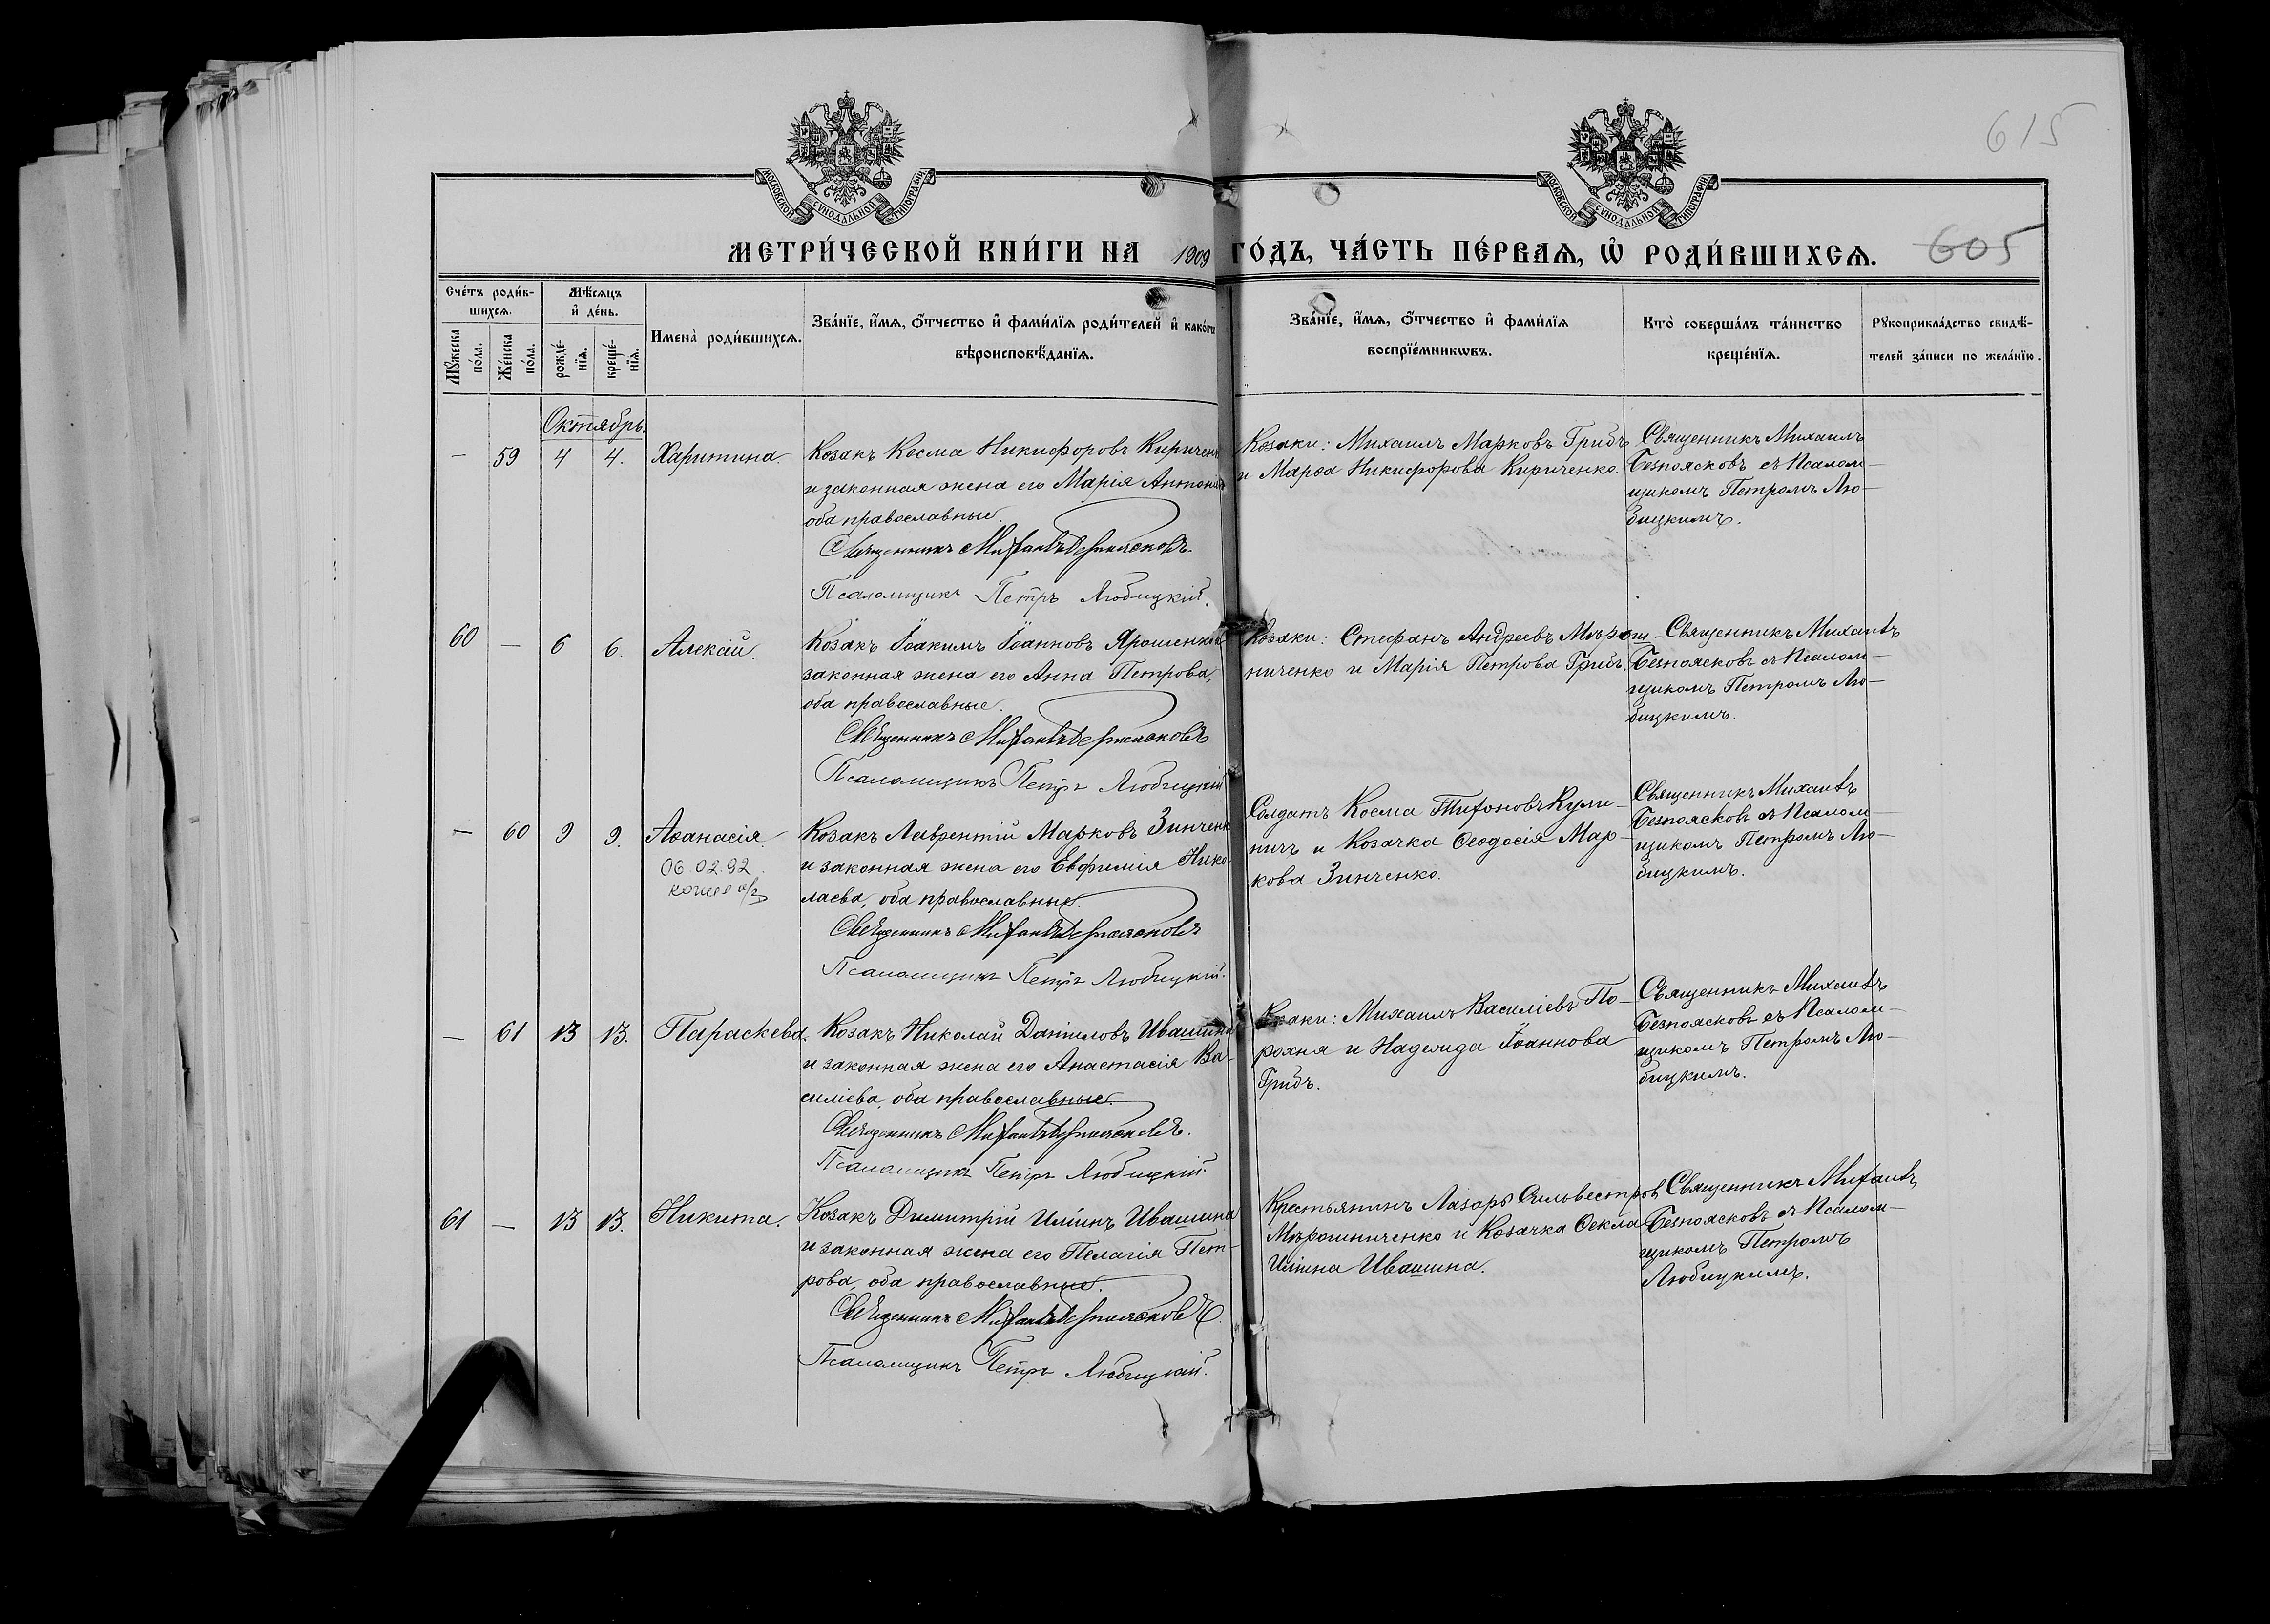 615
МОСКОВСКОЙ СѴНОДАЛЬНОЙ ТИПОГРАФІИ
МОСКОВСКОЙ СѴНОДАЛЬНОЙ ТИПОГРАФІИ
МЕТРИ́ЧЕСКОЙ КНИ́ГИ НА 1909 ГО́ДЪ, ЧА́СТЬ ПЕ́РВАѦ, Ѡ҆ РОДИ́ВШИХСѦ.
605
Сче́тъ роди́в-
шихсѧ.
Мꙋ́жеска по́ла.
Же́нска по́ла.
Мѣ́сѧцъ
и҆ де́нь.
рожде́-нїѧ.
креще́-нїѧ.
Имена̀ роди́вшихсѧ.
Зва́нїе, и҆́мѧ, ѻ҆́тчество и҆ фами́лїѧ роди́телей и҆ како́гѡ
вѣроисповѣ́данїѧ.
Зва́нїе, и҆́мѧ, ѻ҆́тчество и҆ фами́лїѧ
воспрїе́мникѡвъ.
Кто̀ соверша́лъ та́инство
креще́нїѧ.
Рꙋкоприкла́дство свидѣ́-
телей за́писи по жела́нїю.
Октябрь.
— 59 4 4. Харитина.
Козакъ Косма Никифоровъ Киричен
и законная жена его Марія Антоніе
оба православные.
Священникъ Михаилъ Безпоясковъ.
Псаломщикъ Петръ Любицкій.
Козаки: Михаилъ Марковъ Грибъ
и Марѳа Никифорова Кириченко.
Священникъ Михаилъ
Безпоясковъ съ Псалом-
щикомъ Петромъ Лю-
бицкимъ.
60 — 6 6. Алексій.
Козакъ Іоакимъ Іоанновъ Ярошенко и
законная жена его Анна Петрова,
оба православные.
Священникъ Михаилъ Безпоясковъ
Псаломщикъ Петръ Любицкій
Козаки: Стефанъ Андреевъ Мѣрош-
ниченко и Марія Петрова Грибъ.
Священникъ Михаилъ
Безпоясковъ съ Псалом-
щикомъ Петромъ Лю-
бицкимъ.
— 60 9 9. Аѳанасія.
06.02.92
Козакъ Лаврентій Марковъ Зинченк
и законная жена его Евфимія Нико-
лаева, оба православные.
Священникъ Михаилъ Безпоясковъ
Псаломщикъ Петръ Любицкій.
Солдатъ Косма Тихоновъ Кули-
ничъ и Козачка Ѳеодосія Мар-
кова Зинченко.
Священникъ Михаилъ
Безпоясковъ съ Псалом-
щикомъ Петромъ Лю-
бицкимъ.
— 61 13 13. Параскева.
Козакъ Николай Даніиловъ Ивашина
и законная жена его Анастасія Ва-
силіева, оба православные.
Священникъ Михаилъ Безпоясковъ.
Псаломщикъ Петръ Любицкій.
Козаки: Михаилъ Василіевъ По-
рохня и Надежда Іоаннова
Грибъ.
Священникъ Михаилъ
Безпоясковъ съ Псалом-
щикомъ Петромъ Лю-
бицкимъ.
61 — 13 13. Никита.
Козакъ Димитрій Иліинъ Ивашина
и законная жена его Пелагія Пет-
рова, оба православные.
Священникъ Михаилъ Безпоясковъ.
Псаломщикъ Петръ Любицкій.
Крестьянинъ Лазарь Сильвестров
Мѣрошниченко и Козачка Ѳекла
Иліина Ивашина.
Священникъ Михаилъ
Безпоясковъ съ Псалом-
щикомъ Петромъ
Любицкимъ.